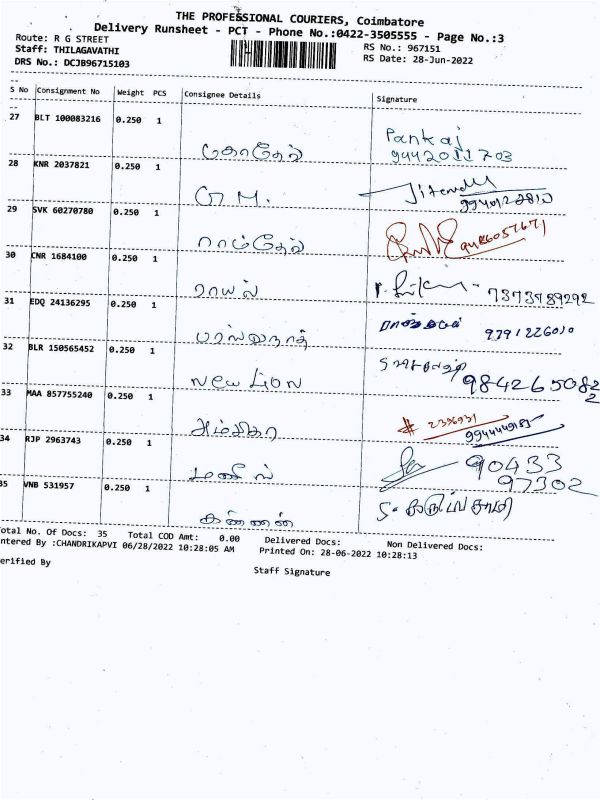 THE PROFESSIONAL COURIERS, Coimbatore
Delivery Runsheet - PCT - Phone No.:0422-3505555 - Page No.:3
Route: R G STREET
RS No.: 967151
Staff: THILAGAVATHI
RS Date: 28-Jun-2022
DRS No.: DCJB96715103
S No Consignment No Weight PCS Consignee Details Signature
27 BLT 100083216 0.250 1
Pankaj
9442011703
28 KNR 2037821 0.250 1 G. M.
29 SVK 60270780 0.250 1 ராம்தேவ்
30 CNR 1684100 0.250 1 ராயல் 7373789292
31 EDQ 24136295 0.250 1 பார்ஸ்வநாத் 9791226010
32 BLR 150565452 0.250 1 New Lion
9842650822
33 MAA 857755240 0.250 1 அம்பிகா
34 RJP 2963743 0.250 1 90433
97302
35 VNB 531957 0.250 1 கண்ணன் S. கருப்புசாமி
Total No. Of Docs: 35 Total COD Amt: 0.00 Delivered Docs: Non Delivered Docs:
ntered By :CHANDRIKAPVI 06/28/2022 10:28:05 AM Printed On: 28-06-2022 10:28:13
erified By
Staff Signature